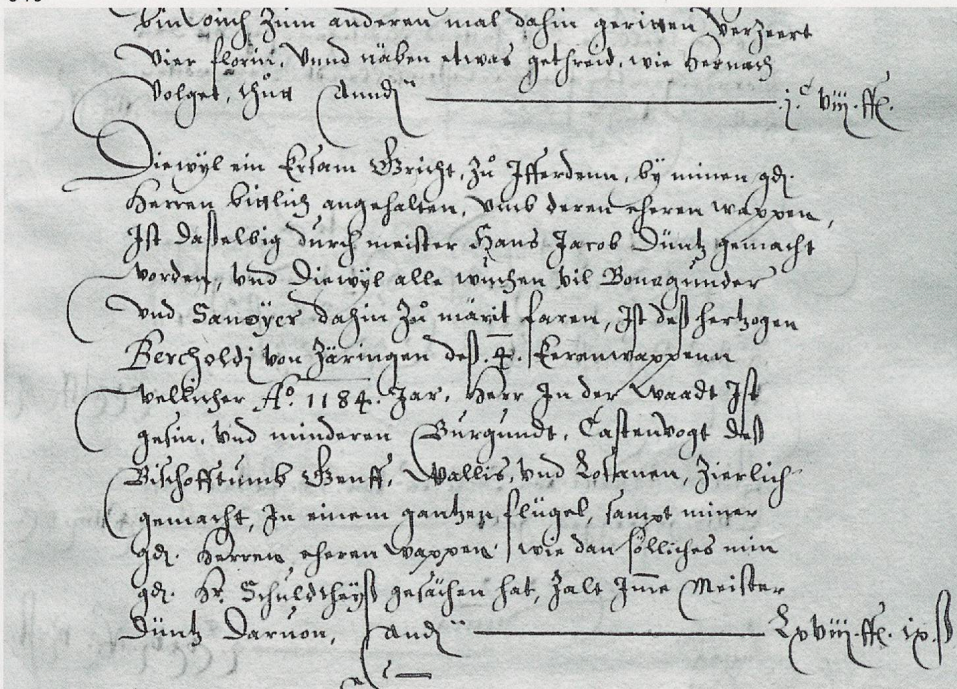 bin ouch zum anderen mal dahin geritten verzeert
Vier florin, Vnnd näben etwas gethreid, wie hernach
volget, thůtt j.C viij. ff.
Diewyl ein Ersam Gricht, zů Jfferdenn, by minen gd.
Herren bittlich angehalten, vmb deren eheren wappen,
Ist dasselbig durch meister Hans Jacob Düntz gemacht
worden, vnd Diewyl alle wuchen vil Bonrgunder
vnd Sanoyer dahin zů märit faren, Ist deß hertzogen
Berchold von Zäringen deß .4. Eerenwappenn
welicher Ao. 1184. Jar, Herr In der Waadt Ist
gesin, vnd minderen Burgundt, Castenvogt deß
Bischofftumb Genff, Wallis, vnd Losanen, Zierlich
gemacht, In einem gantzen flügel, sampt miner
gd. Herren eheren wappen wie dan sölliches min
gd. Hr. Schuldtheyß gesächen hat, Zalt Jme Meister
Düntz Daruon, Lxviij. ff. ix. ß